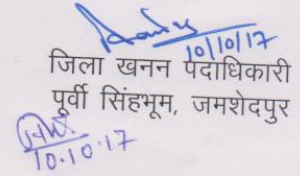 10/10/17
जिला खनन पदाधिकारी
पूर्वी सिंहभूम, जमशेदपुर
10.10.17